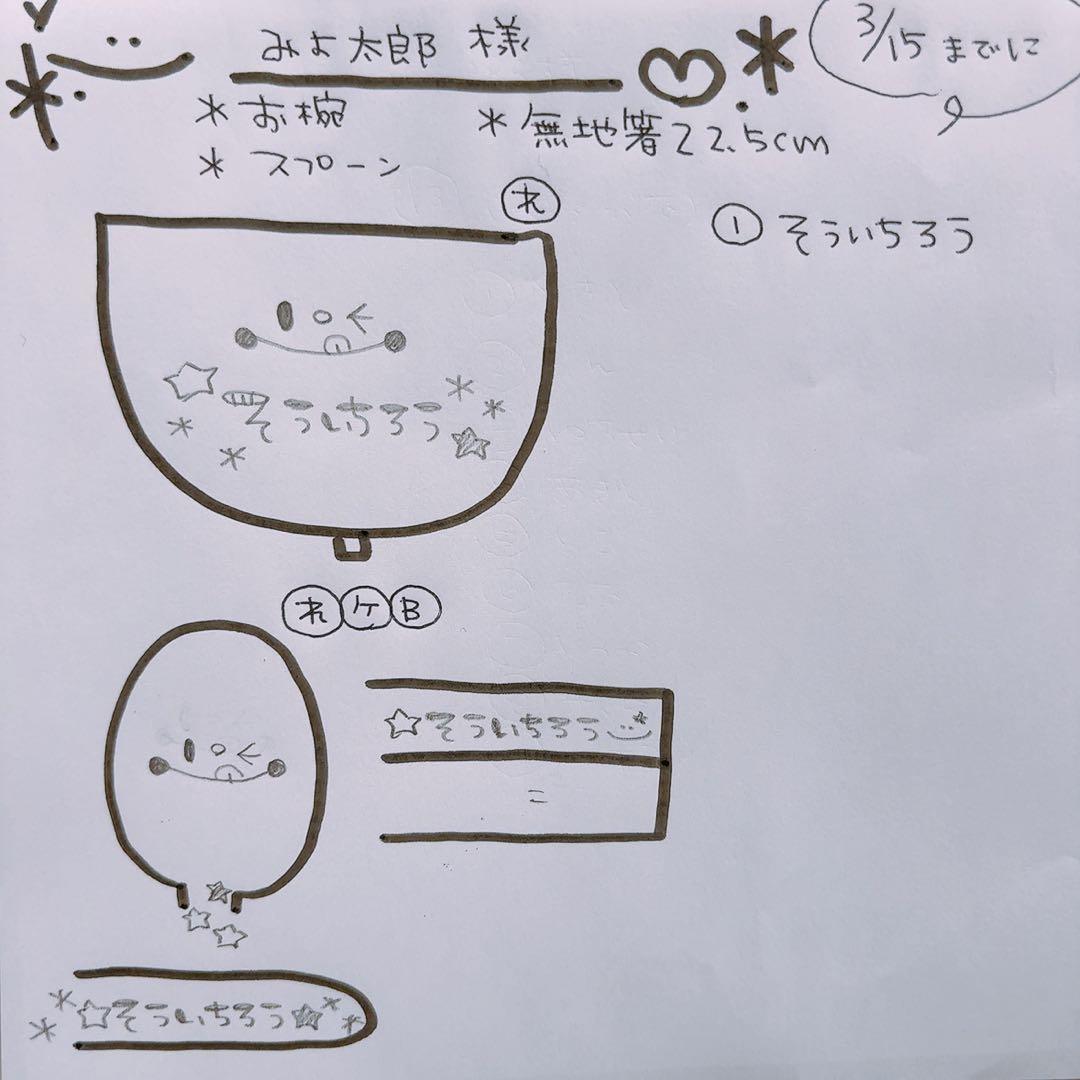 みよ太郎 様
3/15 までに
* お椀
* 無地箸 22.5cm
* スプーン
れ
① そういちろう
そういちろう
れ ケ B
☆そういちろう
こ
☆そういちろう☆